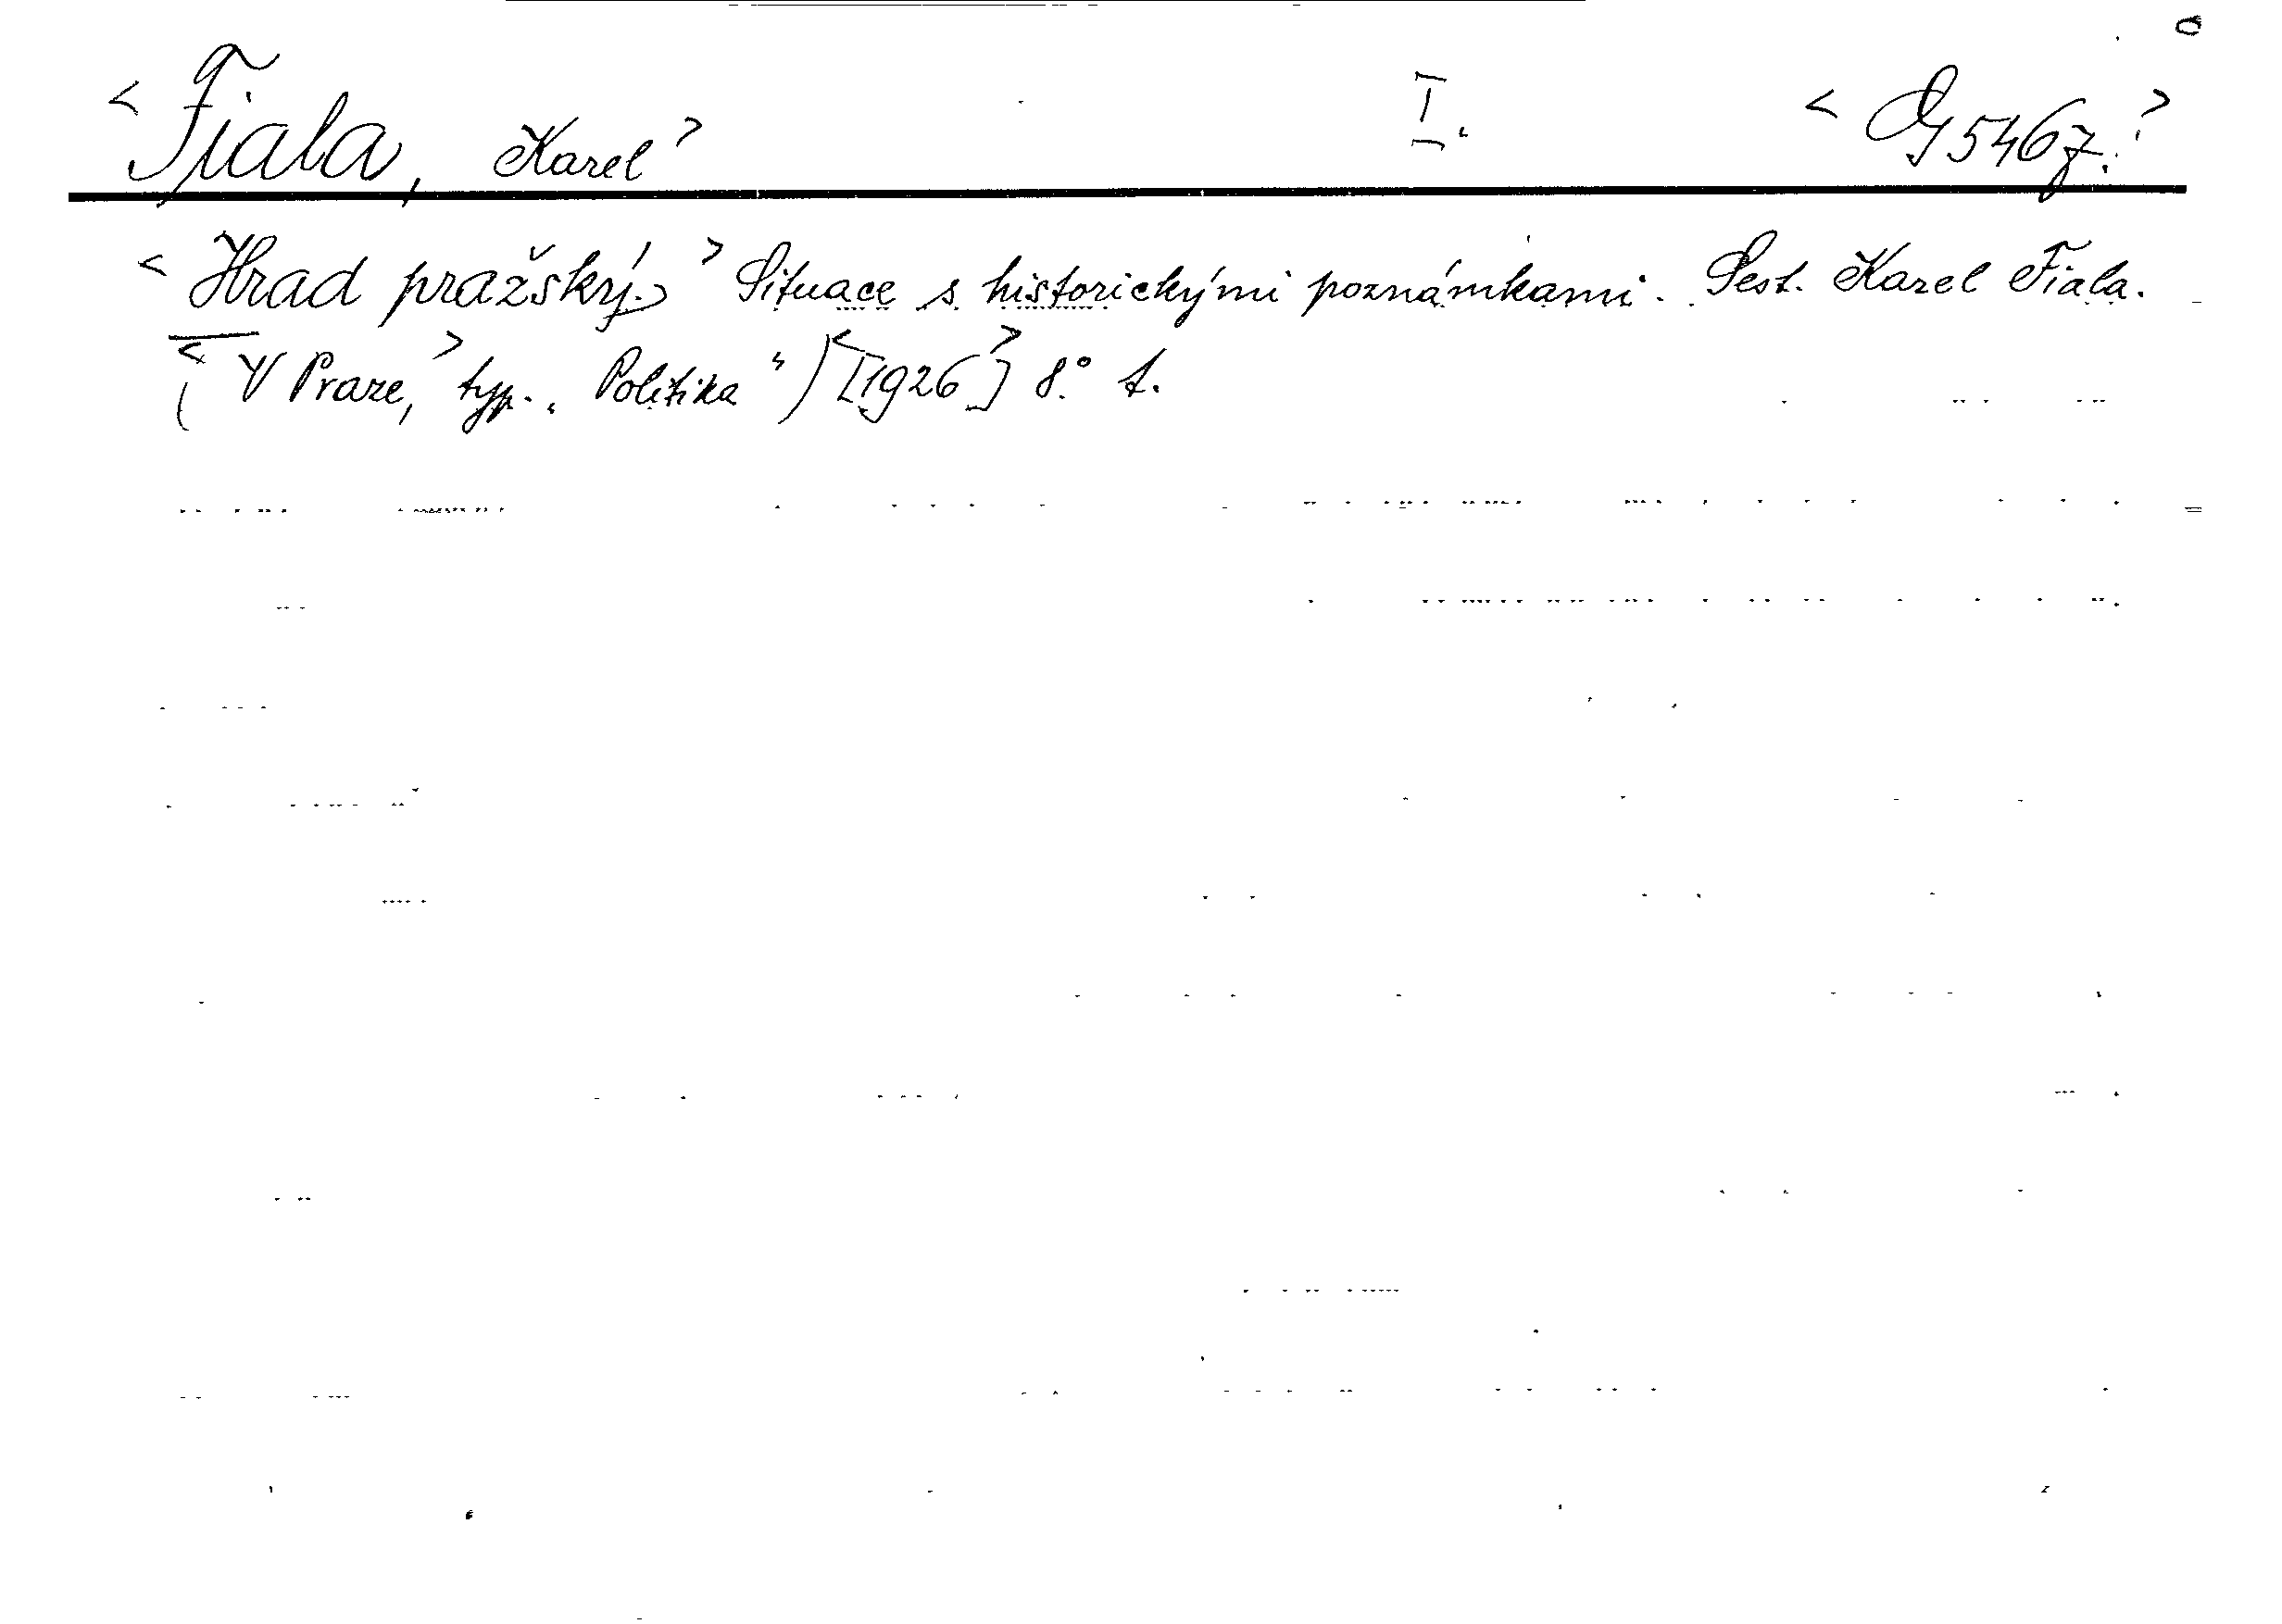 < Fiala, Karel > I. < Og 5467. >
< Hrad pražský. > Situace s historickými poznámkami. Sest. Karel Fiala.
( < V Praze, > typ. „Politika“) < [1926] > 8.° t.